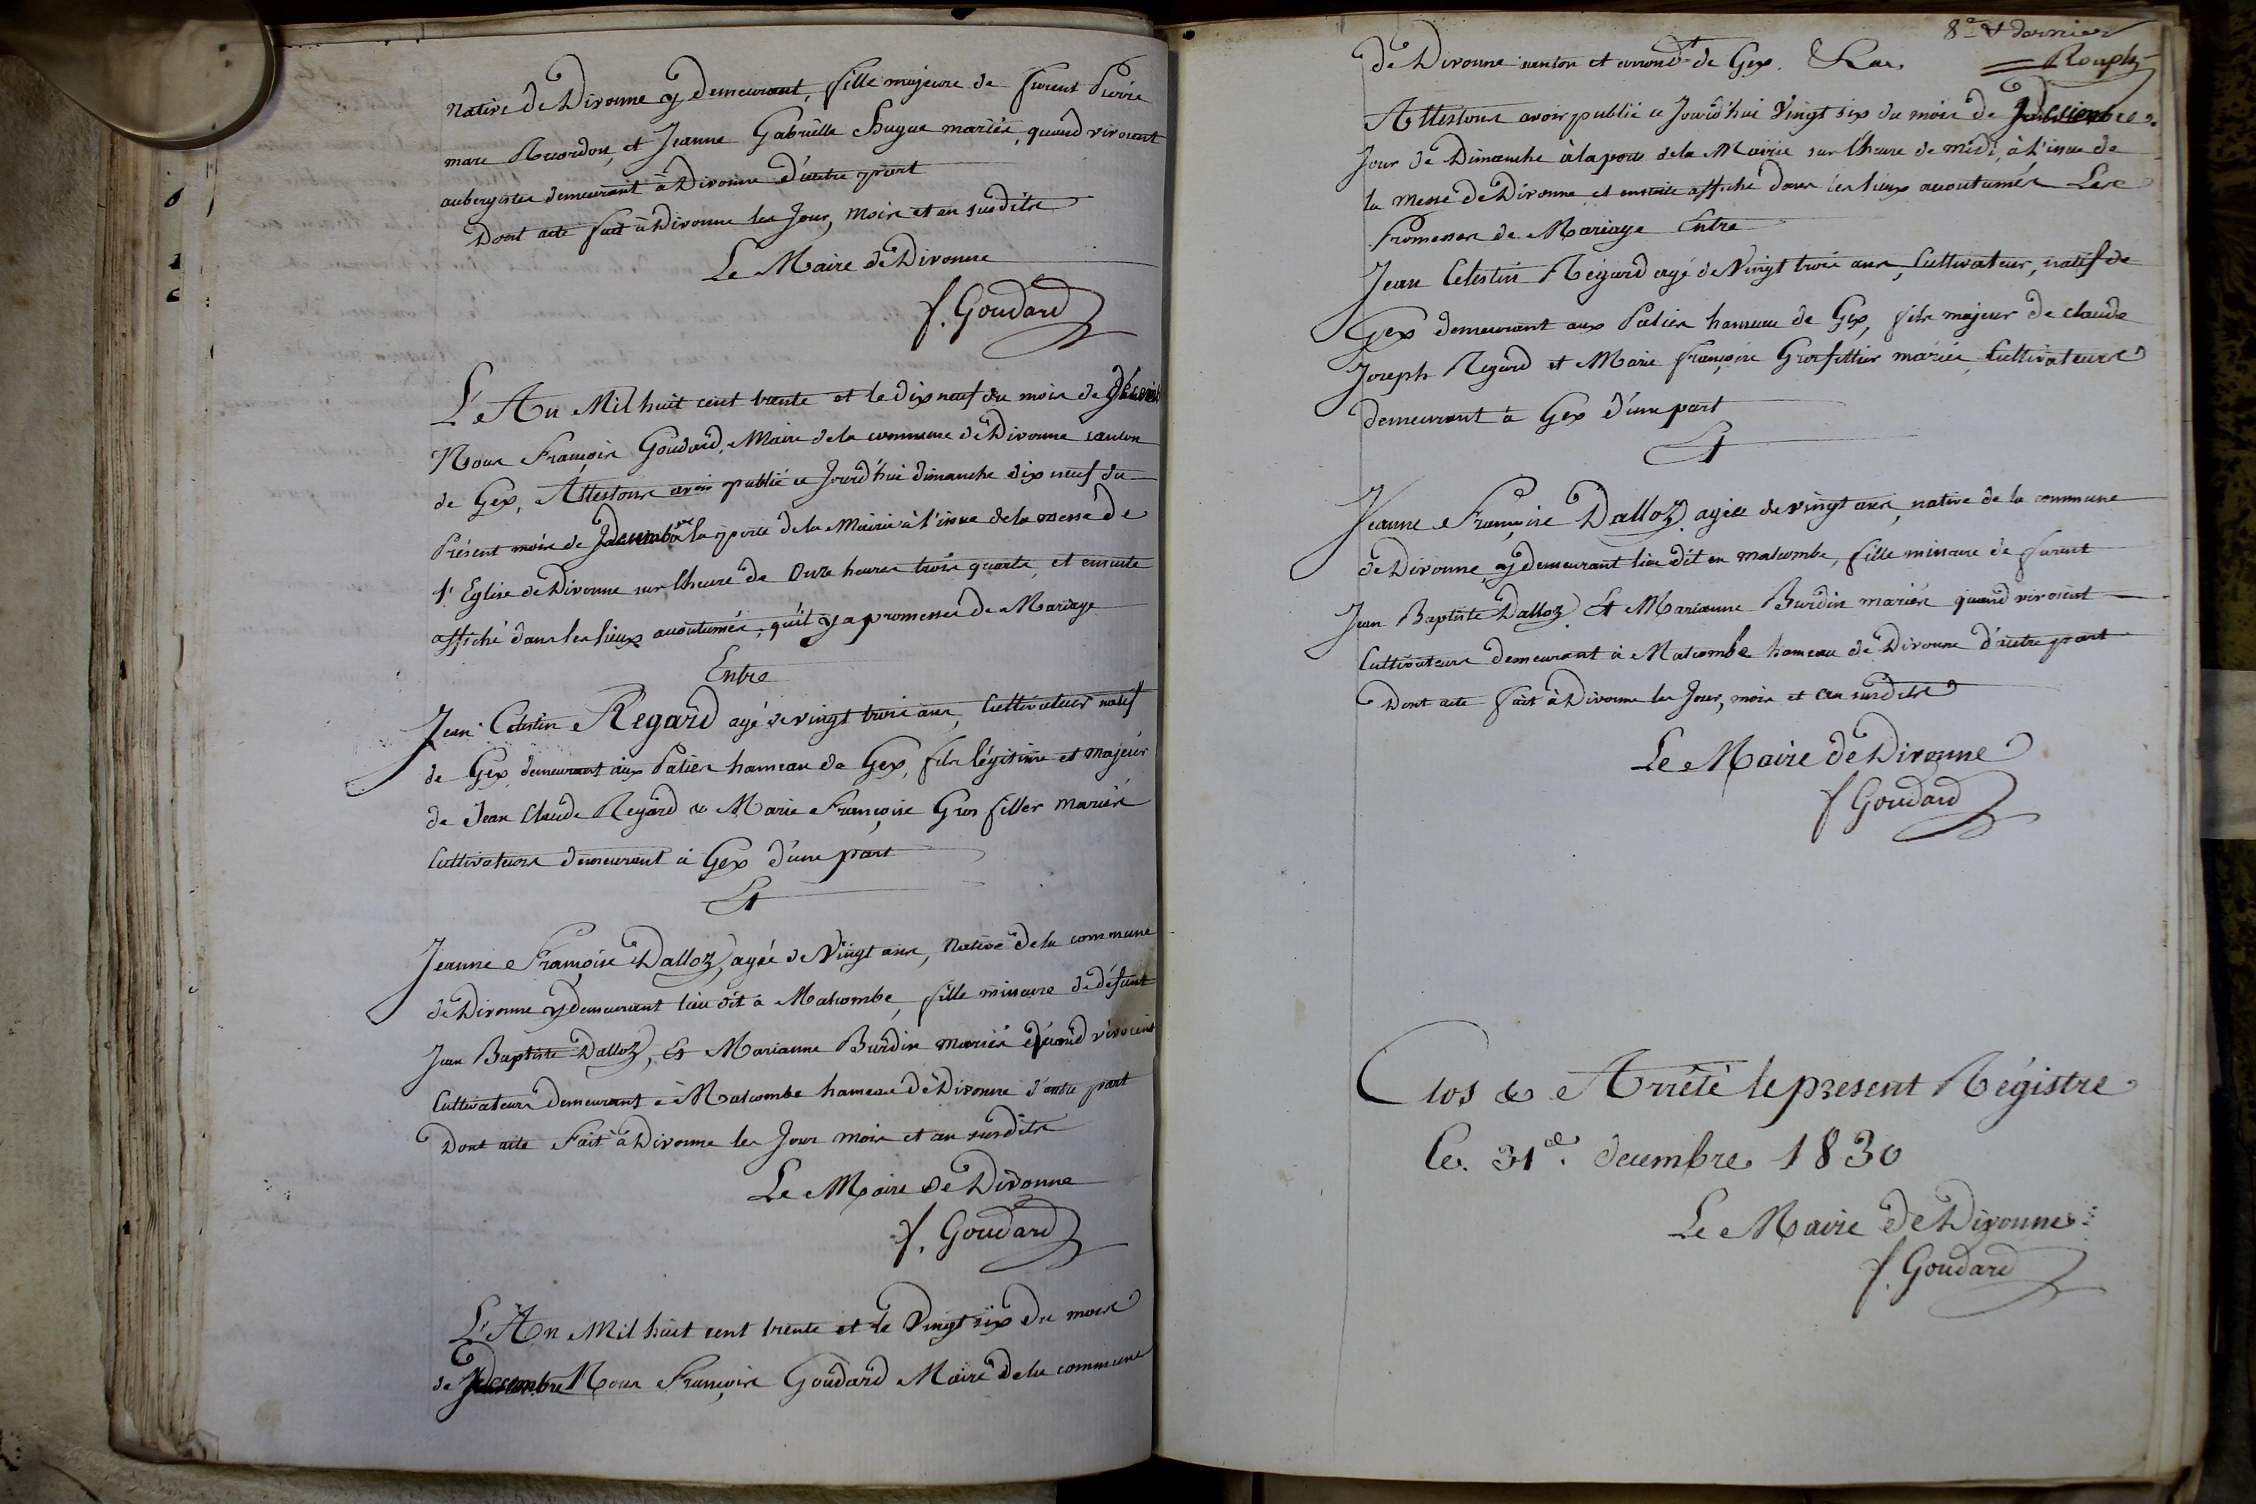 native de Divonne y demeurant, fille majeure de furent Pierre
marc Recordon, et Jeanne Gabrielle Hugue mariés, quand vivoient
aubergistes demeurant à Divonne d'autre part
Dont acte fait à Divonne les Jour, mois et an susdits
Le Maire de Divonne
f. Goudard
L'An Mil huit cent trente et le dix neuf du mois de
Nous François Goudard, Maire de la commune de Divonne canton
de Gex, Attestons avoir publié ce Jourd'hui dimanche dix neuf du
Présent mois de la porte de la Mairie à l'issue de la messe de
l'Eglise de Divonne sur l'heure de Onze heures trois quarts, et ensuite
affiché dans les lieux accoutumés, qu'il y a promesses de Mariage
Entre
Jean Celestin Regard agé de vingt trois ans, Cultivateur natif
de Gex demeurant aux Paties hameau de Gex, fils légitime et majeur
de Jean Claude Regard & Marie Françoise Gros fillex mariés
Cultivateurs demeurant à Gex d'une part
Et
Jeanne Françoise Dalloz, agée de Vingt ans, Native de la commune
de Divonne y demeurant lieu dit à Malcombe, fille mineure de défunt
Jean Baptiste Dalloz, Et Marianne Burdin mariés quand vivoient
Cultivateurs demeurant à Malcombe hameau de Divonne d'autre part
Dont acte Fait à Divonne les Jour mois et an susdits
Le Maire de Divonne
f. Goudard
L'An Mil huit cent trente et le Vingt six du mois
de decembre Nous François Goudard Maire de la commune
8e & dernier
de Divonne canton et arrondt de Gex.
Attestons avoir publié ce Jourd'hui Vingt six du mois de
Jour de Dimanche à la porte de la Mairie sur l'heure de midi, à l'issue de
la Messe de Divonne et ensuite affiché dans les lieux accoutumés Les
Promesses de Mariage Entre
Jean Celestin Régard agé de Vingt trois ans, Cultivateur, natif de
Gex demeurant aux Paties hameau de Gex, fils majeur de claude
Joseph Regard et Marie françoise Grosfillier mariés, Cultivateurs
demeurant à Gex d'une part
Et
Jeanne Françoise Dalloz agée de vingt ans, native de la commune
de Divonne, y demeurant lieu dit en malcombe, fille mineure de furent
Jean Baptiste Dalloz, Et Marianne Burdin mariés quand vivoient
Cultivateurs demeurant à Malcombe hameau de Divonne d'autre part
Dont acte fait à Divonne les Jour, mois et an susdits
Le Maire de Divonne
f Goudard
Clos & Arrêté le present Régistre
Le 31 decembre 1830
Le Maire de Divonne
f. Goudard